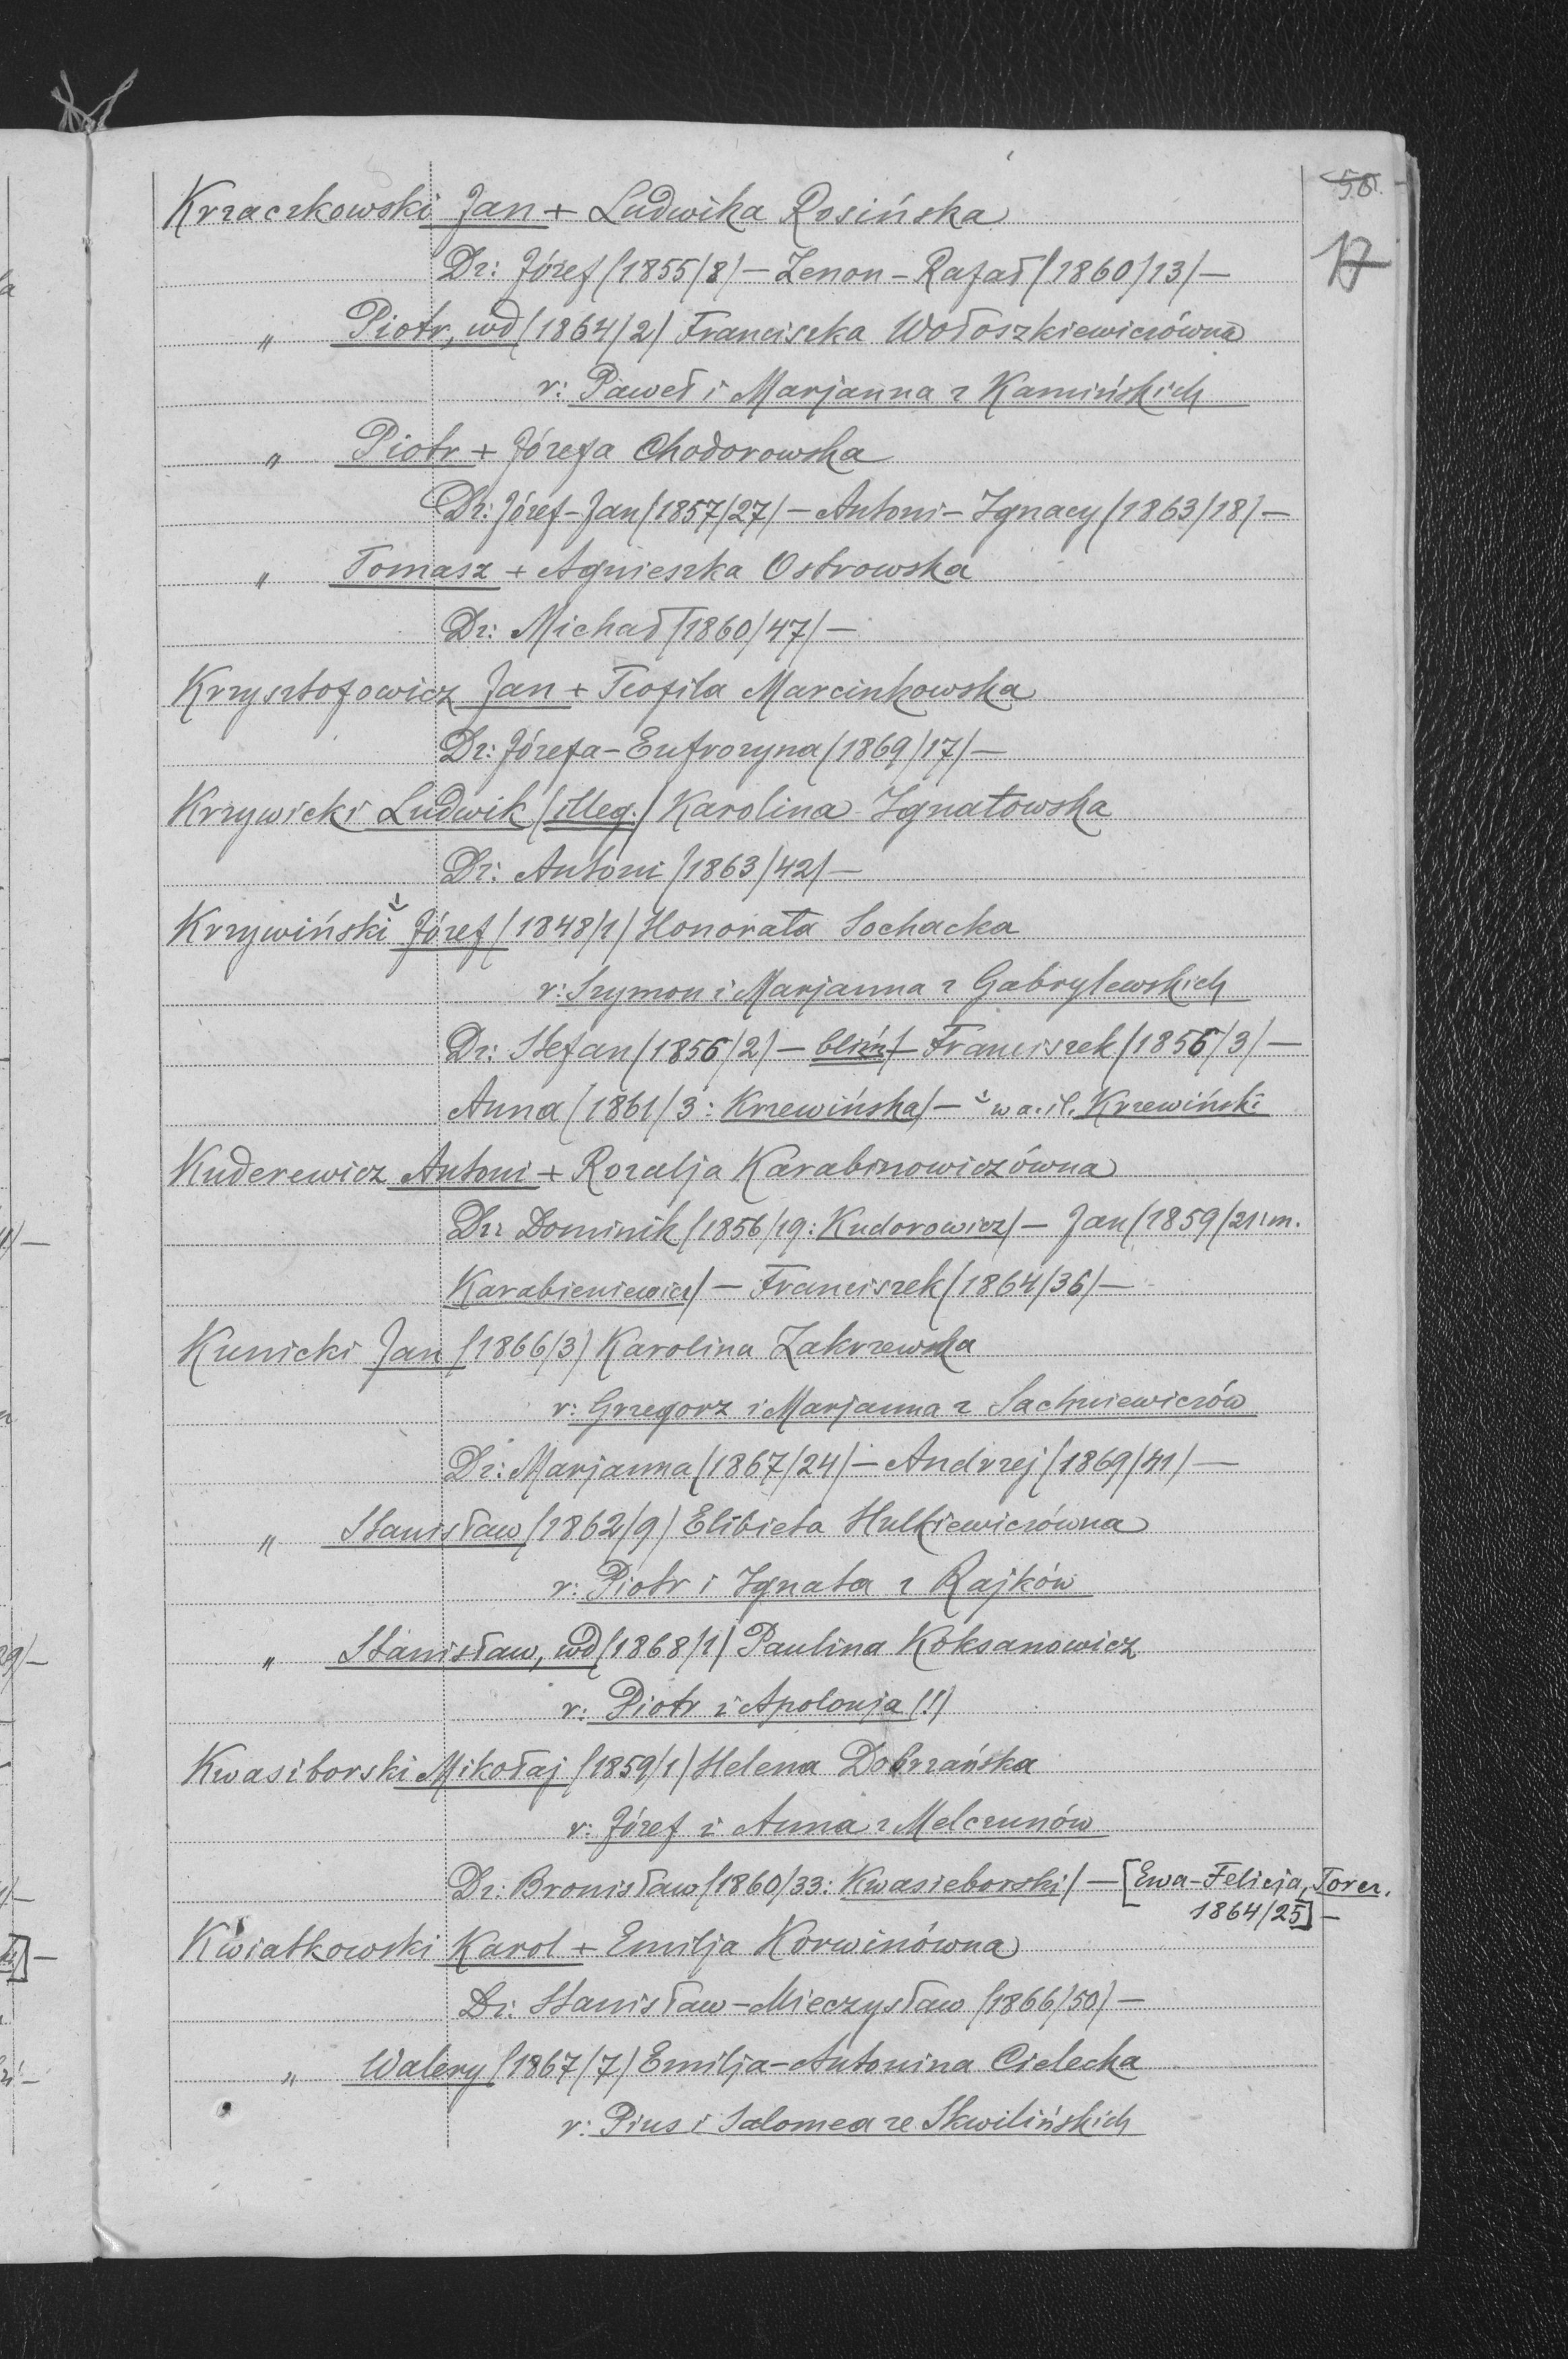 50.
17
Krzaczkowski Jan + Ludwika Rosińska
Dz: Józef /1855/8/ — Zenon-Rafał /1860/13/ —
„ Piotr, wd /1864/2/ Franciszka Wołoszkiewiczówna
r: Paweł i Marjanna z Kamińskich
„ Piotr + Józefa Chodorowska
Dz: Józef-Jan /1857/27/ — Antoni-Ignacy /1863/18/ —
„ Tomasz + Agnieszka Ostrowska
Dz: Michał /1860/47/ —
Krzysztofowicz Jan + Teofila Marcinkowska
Dz: Józefa-Eufrozyna /1869/17/ —
Krzywicki Ludwik /illeg./ Karolina Ignatowska
Dz: Antoni /1863/42/ —
Krzywiński Józef /1848/1/ Honorata Sochacka
r: Szymon i Marjanna z Gabrylewskich
Dz: Stefan /1856/2/ — bliźn/ — Franciszek /1856/3/ —
Anna /1861/3: Krzewińska/ — w a. śl. Krzewiński
Kuderewicz Antoni + Rozalja Karabinowiczówna
Dz: Dominik /1856/19: Kudorowicz/ — Jan /1859/21: m.
Karabieniewicz/ — Franciszek /1864/36/ —
Kunicki Jan /1866/3/ Karolina Zakrzewska
r: Grzegorz i Marjanna z Sachniewiczów
Dz: Marjanna /1867/24/ — Andrzej /1869/41/ —
„ Stanisław /1862/9/ Elżbieta Hulkiewiczówna
r: Piotr i Ignata z Rajków
„ Stanisław, wd /1868/1/ Paulina Koksanowicz
r: Piotr i Apolonja /!/
Kwasiborski Mikołaj /1859/1/ Helena Dobrzańska
r: Józef i Anna z Melczunów
Dz: Bronisław /1860/33: Kwasieborski/ — [Ewa-Felicja, Torcz.
1864/25] —
Kwiatkowski Karol + Emilja Korwinówna
Dz: Stanisław-Mieczysław /1866/50/ —
„ Walery /1867/7/ Emilja-Antonina Cielecka
r: Pius i Salomea ze Skwilińskich